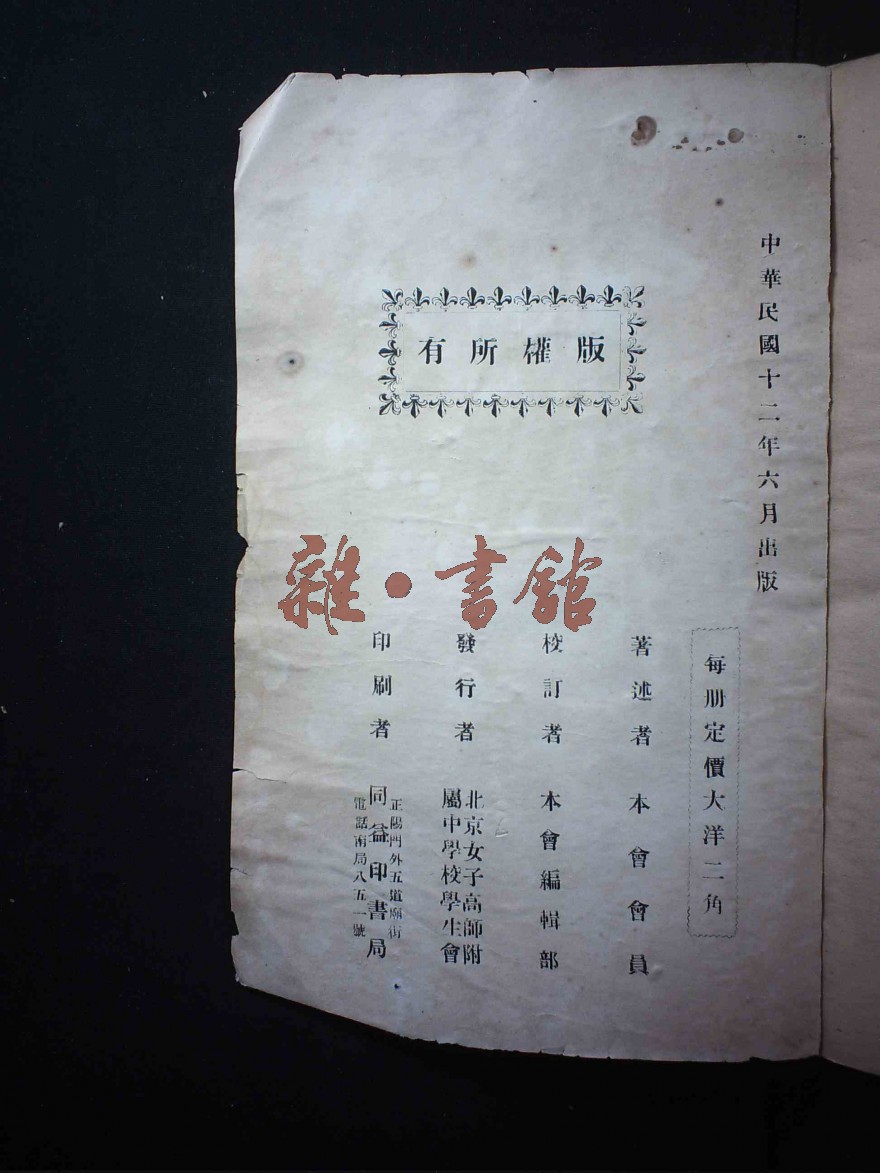 中華民國十二年六月出版
每册定價大洋二角
版權所有
著述者 本會會員
校訂者 本會編輯部
發行者 北京女子高師附
屬中學校學生會
印刷者 同益印書局
正陽門外五道廟街
電話南局八五一號
雜·書館